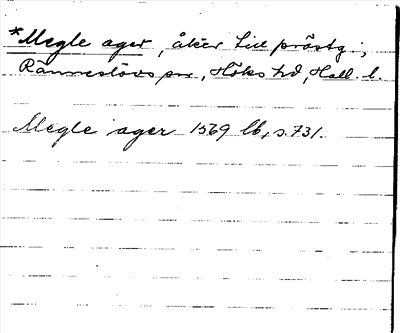 *Megle ager, åker till prästg.,
Ränneslövs sn, Höks hd, Hall. l.
Megle ager 1569 lb, s. 731.